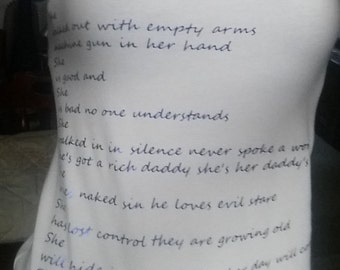 out with empty arms
machine gun in her hand
She
is good and
She
is bad no one understands
She
walked in in silence never spoke a
She's got a rich daddy she's her daddy's
naked sin he loves evil stare
She
has lost control they are growing old
She
will
day will